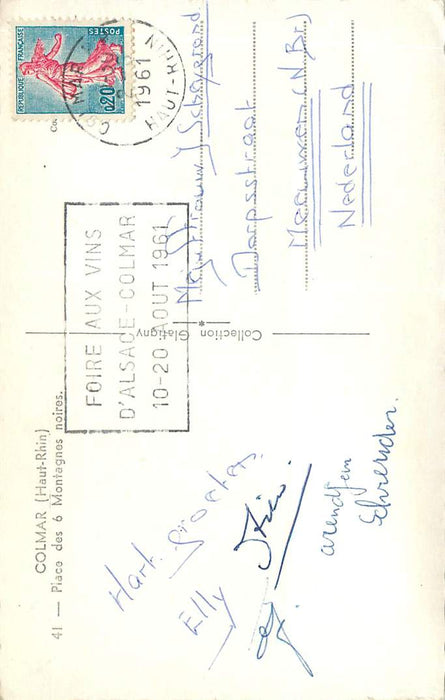 COLMAR (Haut-Rhin)
41 — Place des 6 Montagnes noires.
Hart. Groeten
Elly
arendjem
Ehrender.
Collection Glatigny
FOIRE AUX VINS
D'ALSACE-COLMAR
10-20 AOUT 1961
REPUBLIQUE FRANÇAISE
POSTES
0,20
COLMAR
1961
HAUT-RHIN
8
Mej. J
Dorpsstraat
Meeuwen (N.Br)
Nederland